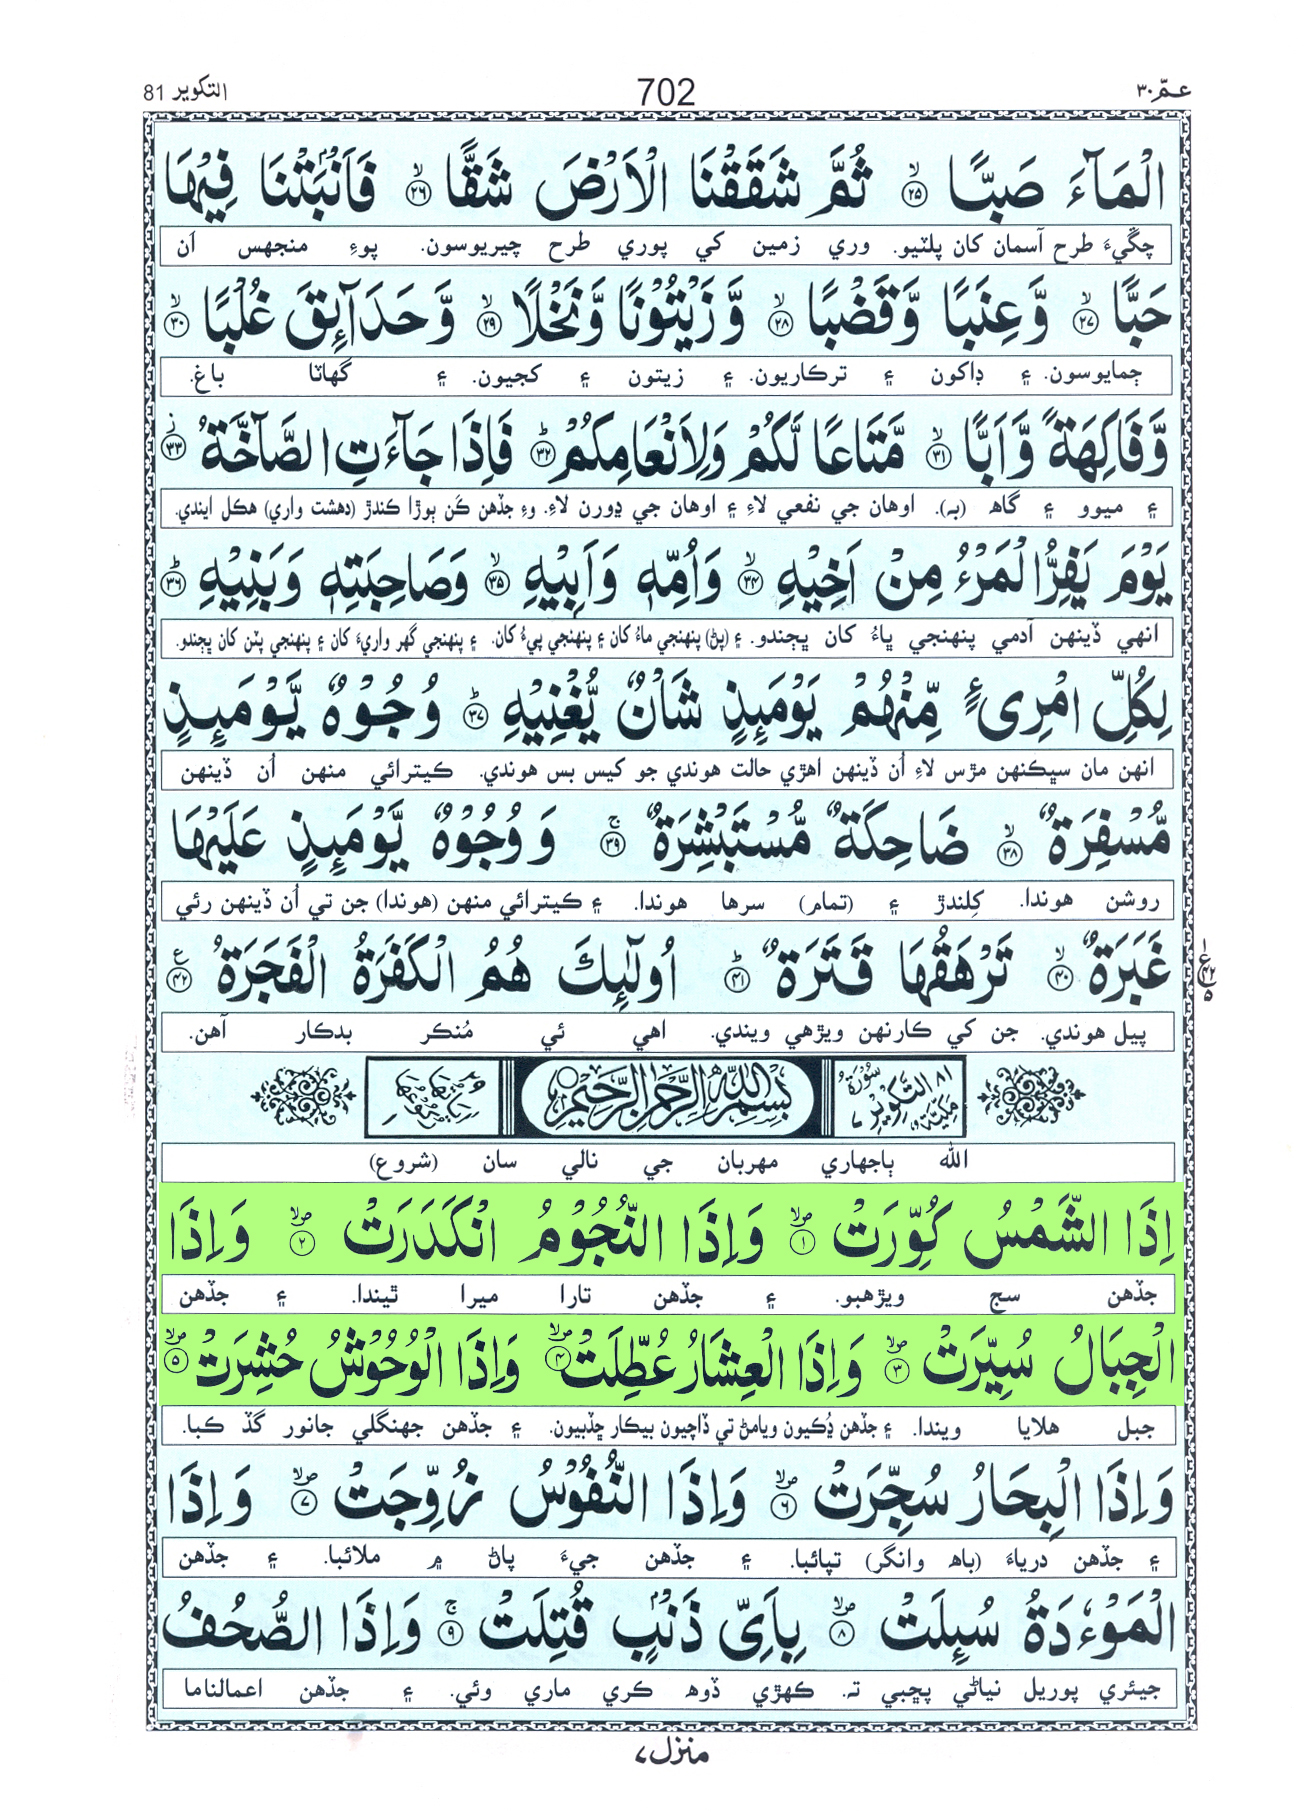 عمّ ٣٠ 702 التكوير 81
الْمَآءَ صَبًّا ۙ‏﴿٢٥﴾ ثُمَّ شَقَقْنَا الْاَرْضَ شَقًّا ۙ‏﴿٢٦﴾ فَاَنْۢبَتْنَا فِيْهَا
چڱيءَ طرح آسمان کان پلٽيو. وري زمين کي پوري طرح چيريوسون. پوءِ منجهس اَن
حَبًّا ۙ‏﴿٢٧﴾ وَّ عِنَبًا وَّ قَضْبًا ۙ‏﴿٢٨﴾ وَّ زَيْتُوْنًا وَّ نَخْلًا ۙ‏﴿٢٩﴾ وَّ حَدَآئِقَ غُلْبًا ۙ‏﴿٣٠﴾
ڄمايوسون. ۽ ڊاکون ۽ ترڪاريون. ۽ زيتون ۽ کجيون. ۽ گهاٽا باغ.
وَّ فَاكِهَةً وَّ اَبًّا ۙ‏﴿٣١﴾ مَّتَاعًا لَّكُمْ وَلِاَنْعَامِكُمْ ؕ‏﴿٣٢﴾ فَاِذَا جَآءَتِ الصَّآخَّةُ ز‏﴿٣٣﴾
۽ ميوو ۽ گاھ (بہ). اوهان جي نفعي لاءِ ۽ اوهان جي ڍورن لاءِ. وءِ جڏهن ڪَن ٻوڙا ڪندڙ (دهشت واري) هڪل ايندي.
يَوْمَ يَفِرُّ الْمَرْءُ مِنْ اَخِيْهِ ۙ‏﴿٣٤﴾ وَ اُمِّهٖ وَ اَبِيْهِ ۙ‏﴿٣٥﴾ وَ صَاحِبَتِهٖ وَ بَنِيْهِ ؕ‏﴿٣٦﴾
انهي ڏينهن آدمي پنهنجي ڀاءُ کان ڀڄندو. ۽ (پڻ) پنهنجي ماءُ کان ۽ پنهنجي پيءُ کان. ۽ پنهنجي گهر واريءَ کان ۽ پنهنجي پٽن کان ڀڄندو.
لِكُلِّ امْرِئٍ مِّنْهُمْ يَوْمَئِذٍ شَاْنٌ يُّغْنِيْهِ ؕ‏﴿٣٧﴾ وُجُوْهٌ يَّوْمَئِذٍ
انهن مان سڀڪنهن مڙس لاءِ اُن ڏينهن اهڙي حالت هوندي جو کيس بس هوندي. ڪيترائي منهن اُن ڏينهن
مُّسْفِرَةٌ ۙ‏﴿٣٨﴾ ضَاحِكَةٌ مُّسْتَبْشِرَةٌ ۚ‏﴿٣٩﴾ وَ وُجُوْهٌ يَّوْمَئِذٍ عَلَيْهَا
روشن هوندا. کِلندڙ ۽ (تمام) سرها هوندا. ۽ ڪيترائي منهن (هوندا) جن تي اُن ڏينهن رئي
غَبَرَةٌ ۙ‏﴿٤٠﴾ تَرْهَقُهَا قَتَرَةٌ ؕ‏﴿٤١﴾ اُولٰٓئِكَ هُمُ الْكَفَرَةُ الْفَجَرَةُ ع‏﴿٤٢﴾
پيل هوندي. جن کي ڪارنهن ويڙهي ويندي. اهي ئي مُنڪر بدڪار آهن.
٨١ سُوْرَةُ التَّكْوِيْرِ مَكِّيَّةٌ ٧ بِسْمِ اللّٰهِ الرَّحْمٰنِ الرَّحِيْمِ
الله ٻاجهاري مهربان جي نالي سان (شروع)
اِذَا الشَّمْسُ كُوِّرَتْ ۪ۙ‏﴿١﴾ وَ اِذَا النُّجُوْمُ انْكَدَرَتْ ۪ۙ‏﴿٢﴾ وَ اِذَا
جڏهن سج ويڙهبو. ۽ جڏهن تارا ميرا ٿيندا. ۽ جڏهن
الْجِبَالُ سُيِّرَتْ ۪ۙ‏﴿٣﴾ وَ اِذَا الْعِشَارُ عُطِّلَتْ ۪ۙ‏﴿٤﴾ وَ اِذَا الْوُحُوْشُ حُشِرَتْ ۪ۙ‏﴿٥﴾
جبل هلايا ويندا. ۽ جڏهن ڍُڪيون ويامڻ تي ڏاچيون بيڪار ڇڏبيون. ۽ جڏهن جهنگلي جانور گڏ ڪبا.
وَ اِذَا الْبِحَارُ سُجِّرَتْ ۪ۙ‏﴿٦﴾ وَ اِذَا النُّفُوْسُ زُوِّجَتْ ۪ۙ‏﴿٧﴾ وَ اِذَا
۽ جڏهن درياءَ (باھ وانگر) تپائبا. ۽ جڏهن جيءَ پاڻ ۾ ملائبا. ۽ جڏهن
الْمَوْءٗدَةُ سُئِلَتْ ۪ۙ‏﴿٨﴾ بِاَيِّ ذَنْۢبٍ قُتِلَتْ ۚ‏﴿٩﴾ وَ اِذَا الصُّحُفُ
جيئري پوريل نياڻي پڇبي تہ. ڪهڙي ڏوھ ڪري ماري وئي. ۽ جڏهن اعمالناما
منزل ٧